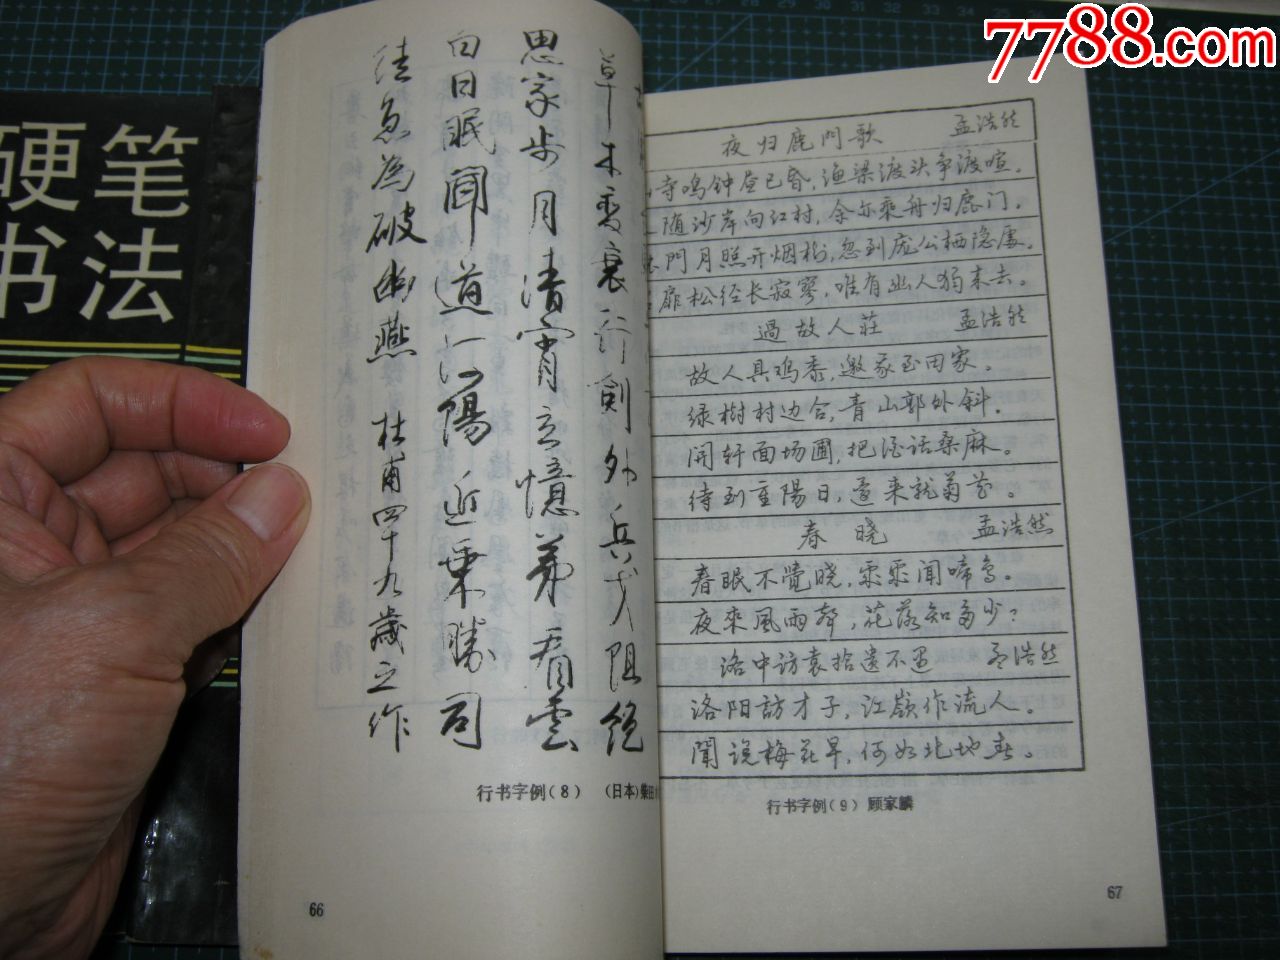 硬笔
书法
7788.com
草木変衰行剣外兵戈阻絕
思家步月清宵立憶弟看雲
白日眠聞道河陽近乗勝司
徒急為破幽燕 杜甫四十九歳之作
行书字例(8) (日本)柴田
66
夜归鹿门歌 孟浩然
寺鸣钟昼已昏,渔梁渡头争渡喧.
随沙岸向江村,余亦乘舟归鹿门.
門月照开烟树,忽到庞公栖隐處.
扉松径长寂寥,唯有幽人独来去。
過故人莊 孟浩然
故人具鸡黍,邀我至田家.
绿樹村边合,青山郭外斜.
開轩面场圃,把酒话桑麻。
待到重陽日,還来就菊花。
春晓 孟浩然
春眠不覺晓,處處闻啼鸟。
夜来風雨聲,花落知多少?
洛中访袁拾遗不遇 孟浩然
洛阳訪才子,江嶺作流人。
聞说梅花早,何如北地春。
行书字例(9) 顾家麟
67